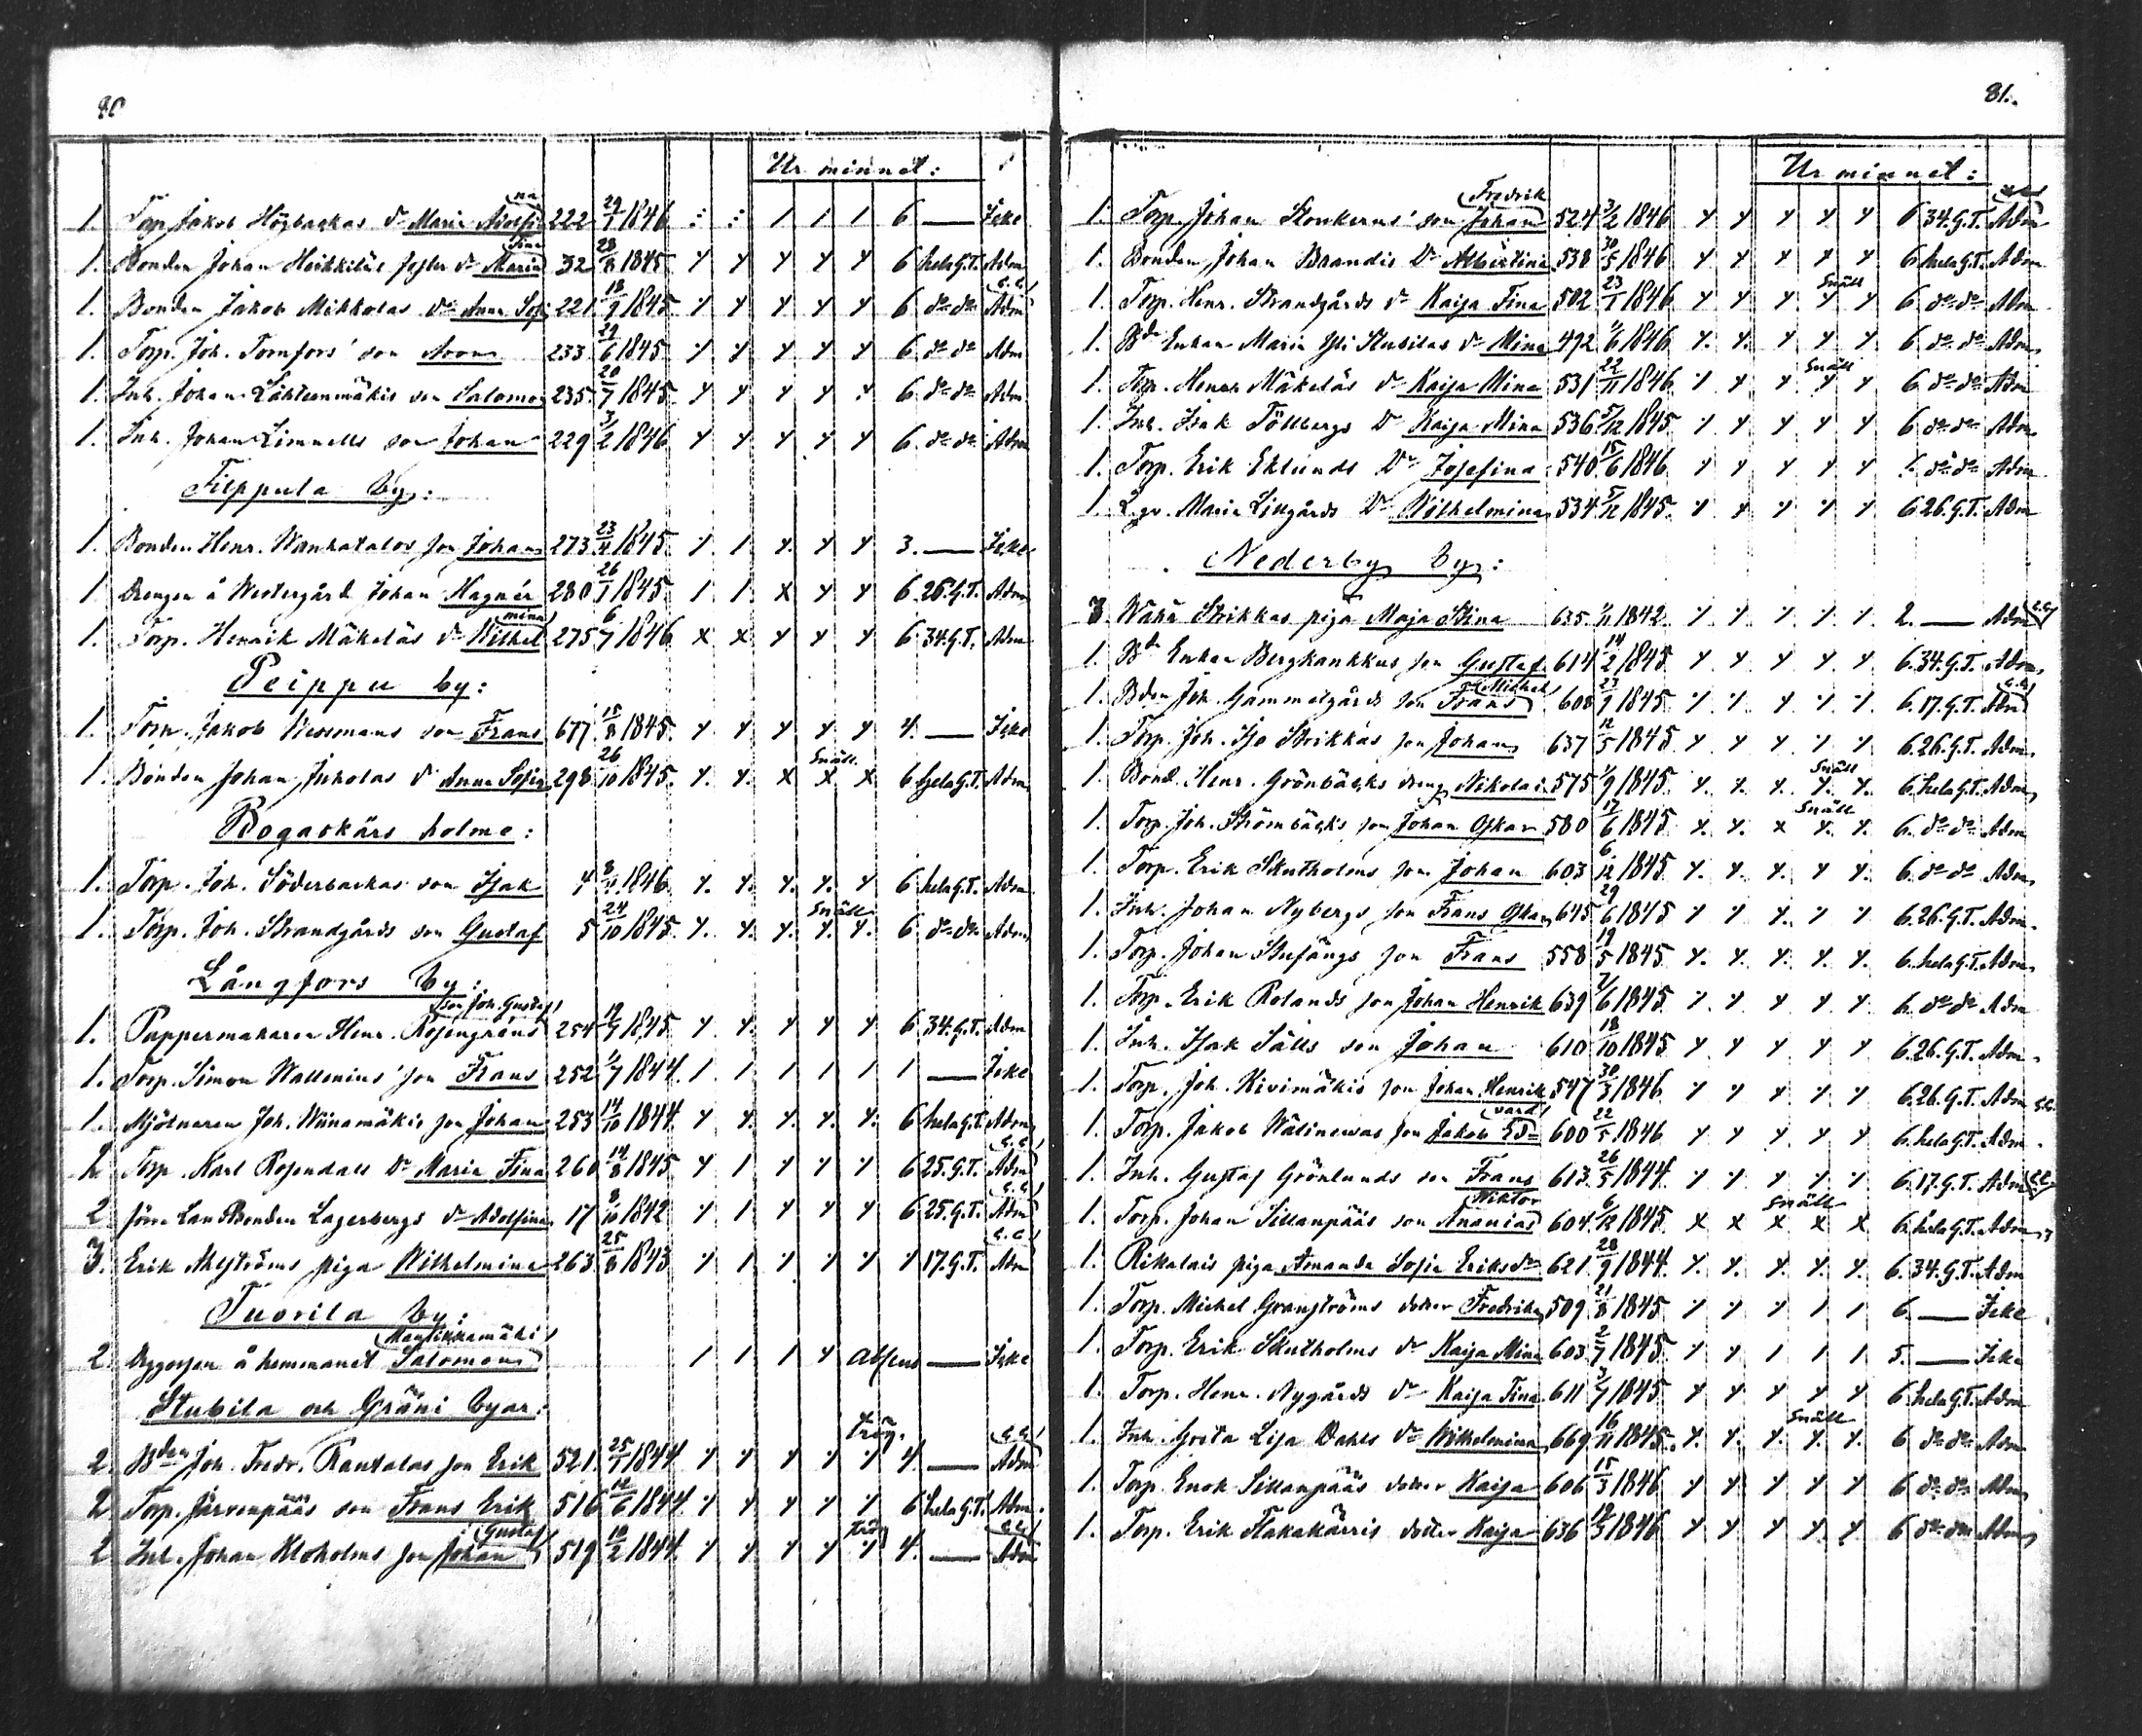 80
Ur minnet:
1. Torp. Jakob Högbackas dr Maria Adolfina 222 29/1 1846 : : 1 1 1 6 — Icke
1. Bonden Johan Heikkiläs dr Maria Fina 32 28/8 1845 6 hela G.T. Adm
1. Bonden Jakob Mikkolas dr Anna Sofi 221 18/9 1845 6 do do Adm
1. Torp. Joh. Tornfors' son Aron 233 29/6 1845 6 do do Adm
1. Inh. Johan Lähteenmäkis son Salomon 235 20/7 1845 6 do do Adm
1. Inh. Johan Limnells son Johan 229 3/2 1846 6 do do Adm
Filppula by:
1. Bonden Henr. Wanhatalos son Johan 273 23/11 1845 3. — Icke
1 Drengen å Westergård Johan Hagnér 280 26/1 1845 6 26.G.T. Adm
1. Torp. Henrik Mäkeläs dr Wilhelmina 275 6/7 1846 x x 6 34.G.T. Adm
Peippu by:
1. Torp. Jakob Wessmans son Frans 677 15/8 1845 4. — Icke
1. Bonden Johan Juholas dr Anna Sofia 298 26/10 1845 x x x Snäll 6 hela G.T. Adm
Bogaskärs holme:
1. Torp. Joh. Söderbackas son Isak 4 8/4 1846 6 hela G.T. Adm
1. Torp. Joh. Strandgårds son Gustaf 5 24/10 1845 Snäll 6 do do Adm
Långfors by:
1. Pappermakaren Henr. Rosengréns son Joh. Gustaf 254 19/9 1845 6 34.G.T. Adm
1. Torp. Simon Wallenius' son Frans 252 1/7 1844 1 1 1 1 1 1 — Icke
1. Mjölnaren Joh. Wiinamäkis son Johan 253 14/10 1844 6 hela G.T. Adm
2. Torp. Karl Rosendals dr Maria Fina 260 14/8 1845 6 25.G.T. Adm
2 förre Bonden Lagerbergs dr Adolfina 17 8/10 1842 6 25.G.T. Adm
3. Erik Ahlströms piga Wilhelmina 263 25/8 1843 17.G.T. Adm
Tuorila by:
2. å hemmanet Salomons Mansikkamäki 1 1 1 absens — Icke
Stubila och Gräni byar:
2. Bden Joh. Fredr. Rantalas son Erik 521 25/1 1844 trög. 4. — Adm
2 Torp. Järvenpääs son Frans Erik 516 12/6 1844 6 hela G.T. Adm
2 Inh. Johan Kloholms son Johan Gustaf 519 10/2 1844 trög 4. — Adm
81.
Ur minnet:
1. Torp. Johan Stenkerus' son Johan Fredrik 524 3/2 1846 6 34.G.T. Adm
1. Bonden Johan Brandis Dr Albertina 538 30/5 1846 6 hela G.T. Adm
1. Torp. Henr. Strandgårds dr Kaija Fina 502 23/1 1846 Snäll 6 do do Adm
1. Bde Enkan Maria Yli Stubilas dr Mina 492 1/6 1846 6 do do Adm
1. Torp. Henrik Mäkeläs dr Kaija Mina 531 22/11 1846 Snäll 6 do do Adm
1. Inh. Isak Töllbergs Dr Kaija Mina 536 5/12 1845 6 do do Adm
1. Torp. Erik Eklunds Dr Josefina 540 15/6 1846 6 do do Adm
1. Maria Lingårds Dr Wilhelmina 534 5/12 1845 6 26.G.T. Adm
Nederby by:
3 Wähä Strikkas piga Maja Stina 635 1/11 1842 2. — Adm
1. Bde Enkan Bergkankkus son Gustaf 614 14/2 1845 6.34.G.T. Adm
1. Bden Joh. Gammelgårds son Frans Mikael 608 23/9 1845 6.17.G.T. Adm
1. Torp. Joh. Iso Strikkas son Johan 637 12/5 1845 6.26.G.T. Adm
1. Bond. Henr. Grönbäcks dreng Nikolai 575 1/9 1845 Snäll 6 hela G.T. Adm
1. Torp. Joh. Strömbäcks son Johan Oskar 580 17/6 1845 Snäll 6. do do Adm
1. Torp. Erik Skutholms son Johan 603 6/12 1845 6. do do Adm
1. Inh. Johan Nybergs son Frans Oskar 645 29/6 1845 6.26.G.T. Adm
1. Torp. Johan Stufängs son Frans 558 19/5 1845 6. hela G.T. Adm
1. Torp. Erik Rolands son Johan Henrik 639 7/6 1845 6. do do Adm
1. Inh. Isak Sälls son Johan 610 18/10 1845 6.26.G.T. Adm
1. Torp. Joh. Kivimäkis son Johan Henrik 547 30/3 1846 6.26.G.T. Adm
1. Torp. Jakob Wälinewas son Jakob Edvard 600 22/5 1846 6. hela G.T. Adm
1. Inh. Gustaf Grönlunds son Frans 613 26/5 1844 6.17.G.T. Adm
1. Torp. Johan Sillanpääs son Ananias Wiktor 604 6/12 1845 x x x x x Snäll 6. hela G.T. Adm
1. Rikalais piga Amanda Sofia Eriksdr 621 28/9 1844 6. 34.G.T. Adm
1. Torp. Michel Granströms dotter Fredrika 509 21/8 1845 6. — Icke
1. Torp. Erik Skutholms dr Kaija Mina 603 2/7 1845 5. — Icke
1. Torp. Henr. Nygårds dr Kaija Fina 611 3/7 1845 6 hela G.T. Adm
1. Inh. Greta Lisa Dahls dr Wilhelmina 669 16/11 1845 Snäll 6 do do Adm
1. Torp. Enok Sillanpääs dotter Kaija 606 15/3 1846 6 do do Adm
1. Torp. Erik Hakakärris dotter Kaija 636 12/3 1846 6 do do Adm